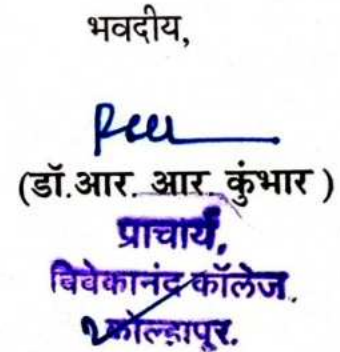 भवदीय,
(डॉ.आर. आर. कुंभार )
प्राचार्य,
विवेकानंद कॉलेज,
कोल्हापूर.